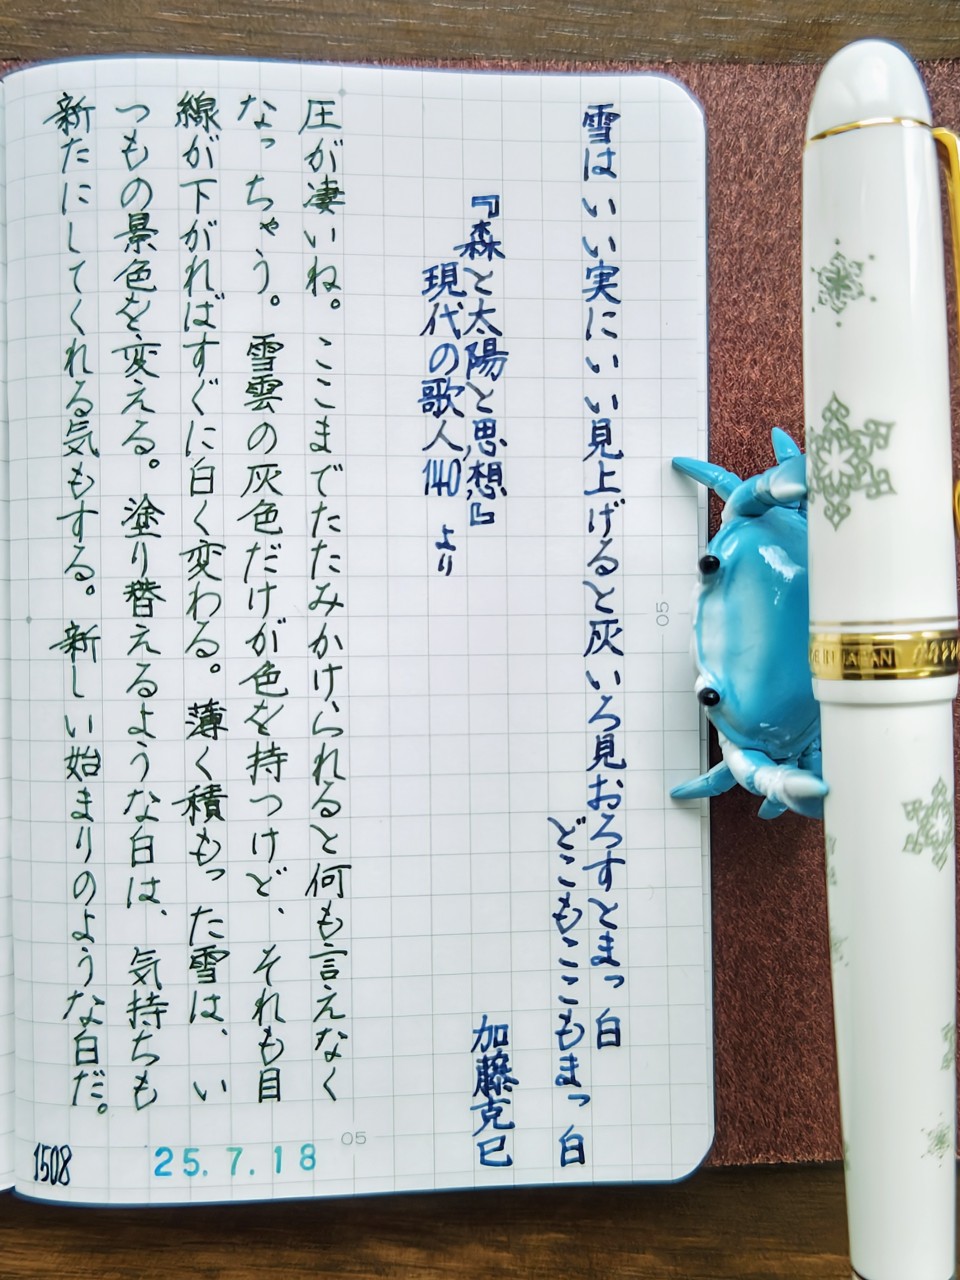 雪はいい実にいい見上げると灰いろ見おろすとまっ白
どこもここもまっ白
『森と太陽と思想』
加藤克巳
現代の歌人140 より
圧が凄いね。ここまでたたみかけられると何も言えなく
なっちゃう。雪雲の灰色だけが色を持つけど、それも目
線が下がればすぐに白く変わる。薄く積もった雪は、い
つもの景色を変える。塗り替えるような白は、気持ちも
新たにしてくれる気もする。新しい始まりのような白だ。
1508
25.7.18
05
05
MADE IN JAPAN